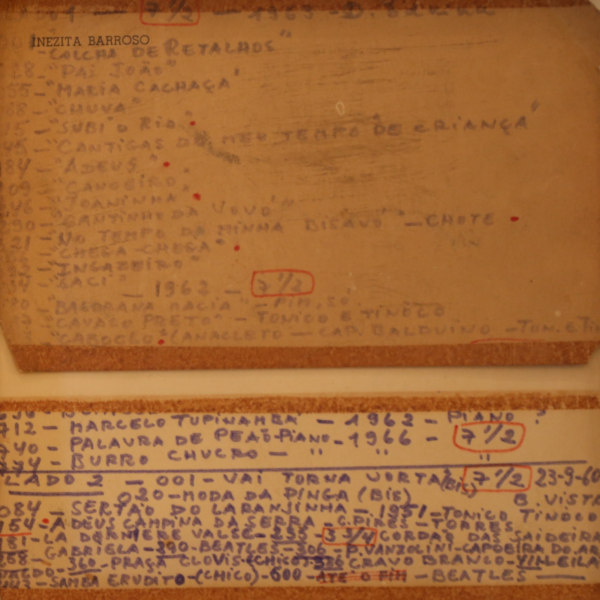 01 — 7 1/2 — 1963 - D.
INEZITA BARROSO
"COLCHA DE RETALHOS"
28 - "PAI JOÃO"
55 - "MARIA CACHAÇA"
68 - "CHUVA"
"SUBI O RIO"
45 - "CANTIGAS DO MEU TEMPO DE CRIANÇA"
84 - "ADEUS"
09 - "CANOEIRO"
46 - "JOANINHA"
90 - "CANTINHO DA VOVÓ"
21 - "NO TEMPO DA MINHA BISAVÓ" - CHOTE
"CHEGA-CHEGA"
"INGAZEIRO"
"SACI"
— 1962 — 7 1/2
MACIA" - FIM.
"CAVALO PRETO" - TONICO E TINOCO
"CABOCLO" (ANACLETO - CAP. BALDUINO - TON. E TIN
712 - MARCELO TUPINAMBÁ - 1962 - PIANO
740 - PALAVRA DE PEÃO-PIANO - 1966 - 7 1/2
774 - BURRO CHUCRO - " " "
LADO 2 - 001 - VAI TORNA VORTA (BIS) 7 1/2 23-9-60
020 - MODA DA PINGA (BIS) B. VISTA
084 - SERTÃO DO LARANJINHA - 1951 - TONICO TINOCO
154 - ADEUS CAMPINA DA SERRA - C. PIRES - TORRES
LA DERNIÈRE VALSE - 255 3 3/4 CORDAS DAS SAIDEIRA
GABRIELA - 390 - BEATLES - 306 - P. VANZOLINI - CAPOEIRA DO AR
360 - PRAÇA CLOVIS (CHICO) CRAVO BRANCO - V. LEILA
443 - SAMBA ERUDITO - (CHICO) - 600 - ATÉ O FIM - BEATLES